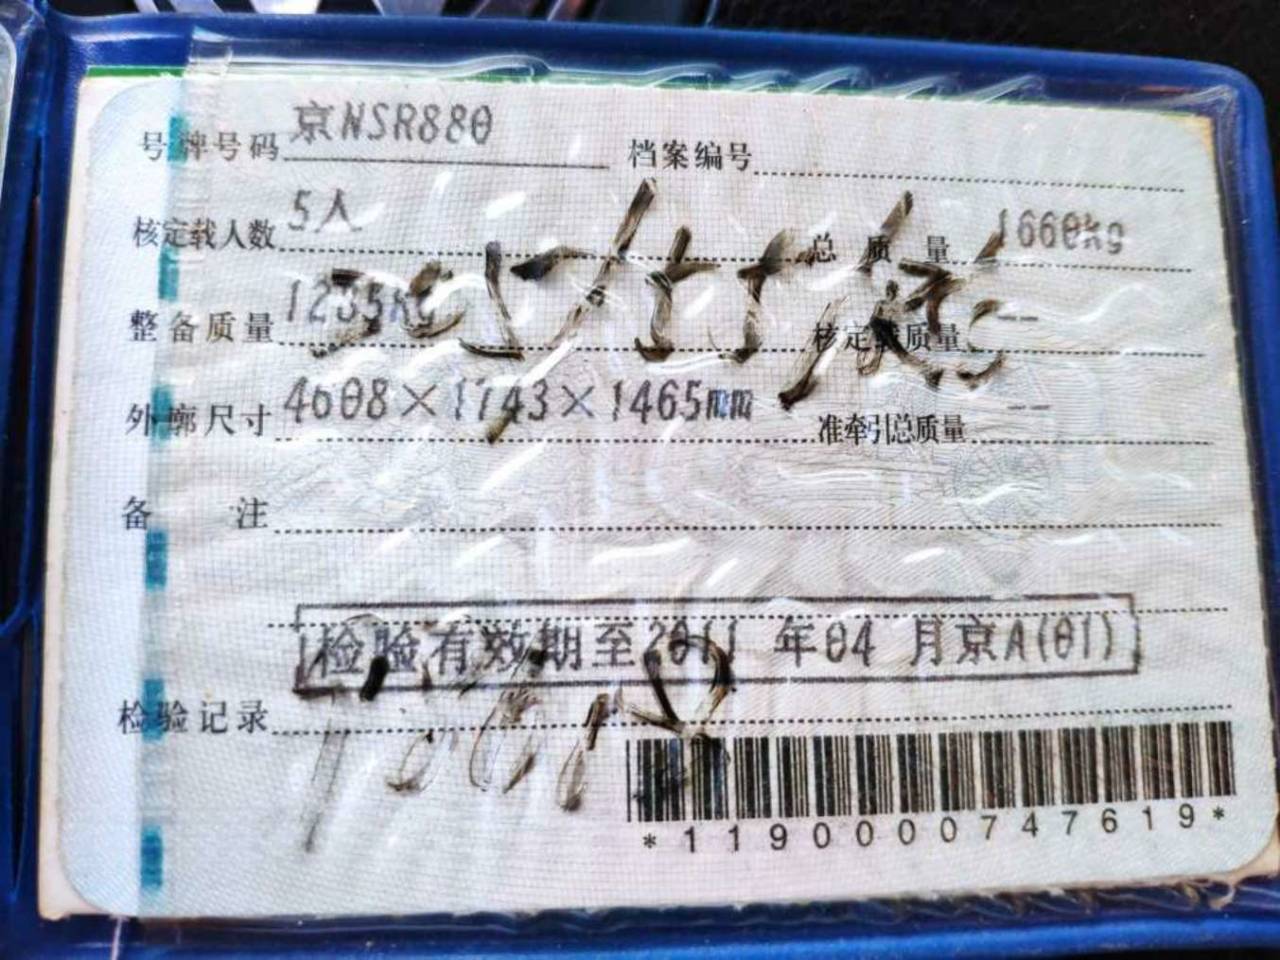 号牌号码 京NSR880 档案编号
核定载人数 5人 总质量 1660kg
整备质量 1235kg 核定载质量 --
外廓尺寸 4608×1743×1465mm 准牵引总质量 --
备注
检验有效期至2011 年04 月京A(01)
检验记录
*1190000747619*